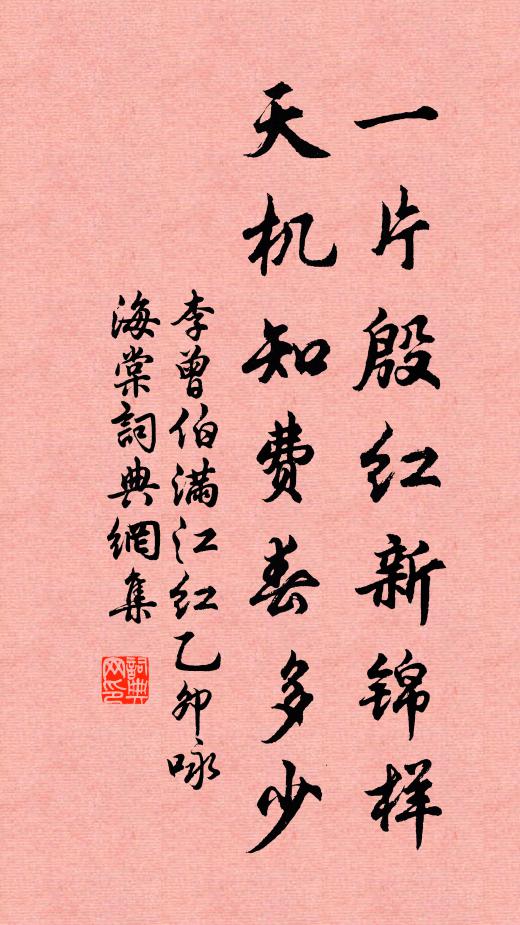 一片殷红新锦样
天机知费春多少
李曾伯满江红乙卯咏
海棠詞典網集
詞典网印